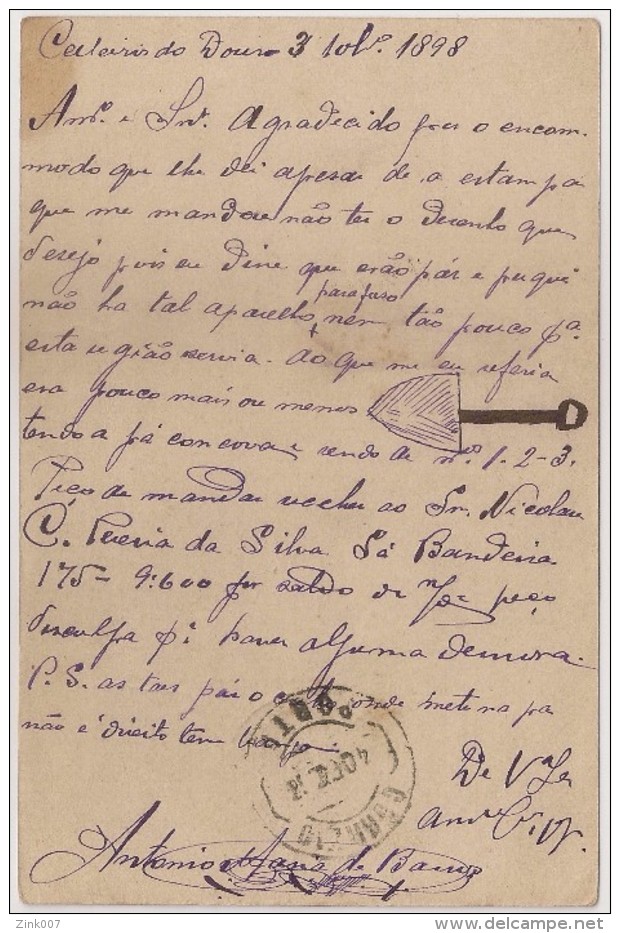 do Douro 3 1898
Amº e Snr. Agradecido pelo encom-
modo que lhe dei apesar de a estampa
que me mandou não ter o desenho que
desejo pois eu disse que erão pás e porqui
não ha tal aparelho parafuso nem tão pouco pª
esta região servia. Ao que me eu referia
era pouco mais ou menos
tendo a pá concova e sendo de nºs 1-2-3.
Peço de mandar receber ao Sr. Nicolau
C. Pereira da Silva Sá Bandeira
175- 9:600 por saldo de peço
desculpa pª haver alguma demora.
P.S. as tais pás o onde mete na pa
não é direito tem
PORTO
4 DEZ 98
CORREIO
De Vª
Antonio de Barros
Zink007
www.delcampe.net